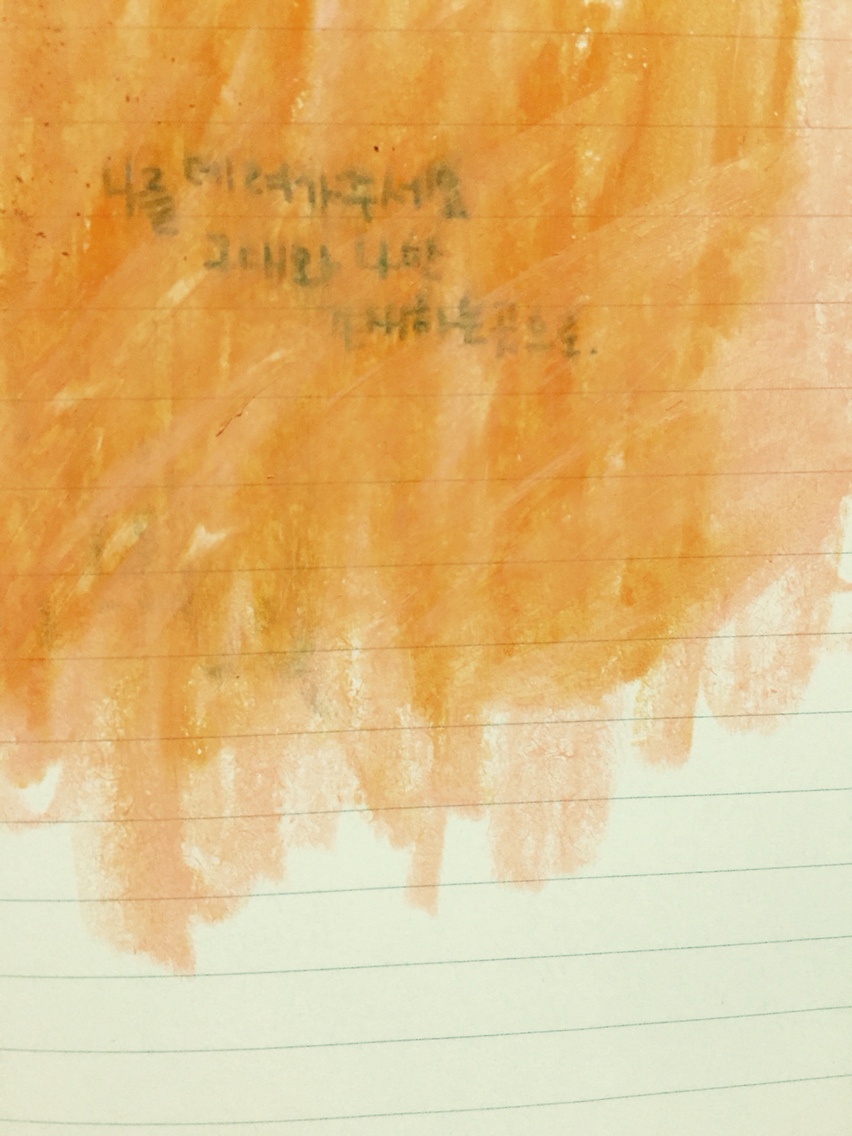 나를 데려가주세요
그대와 나만
존재하는 곳으로.